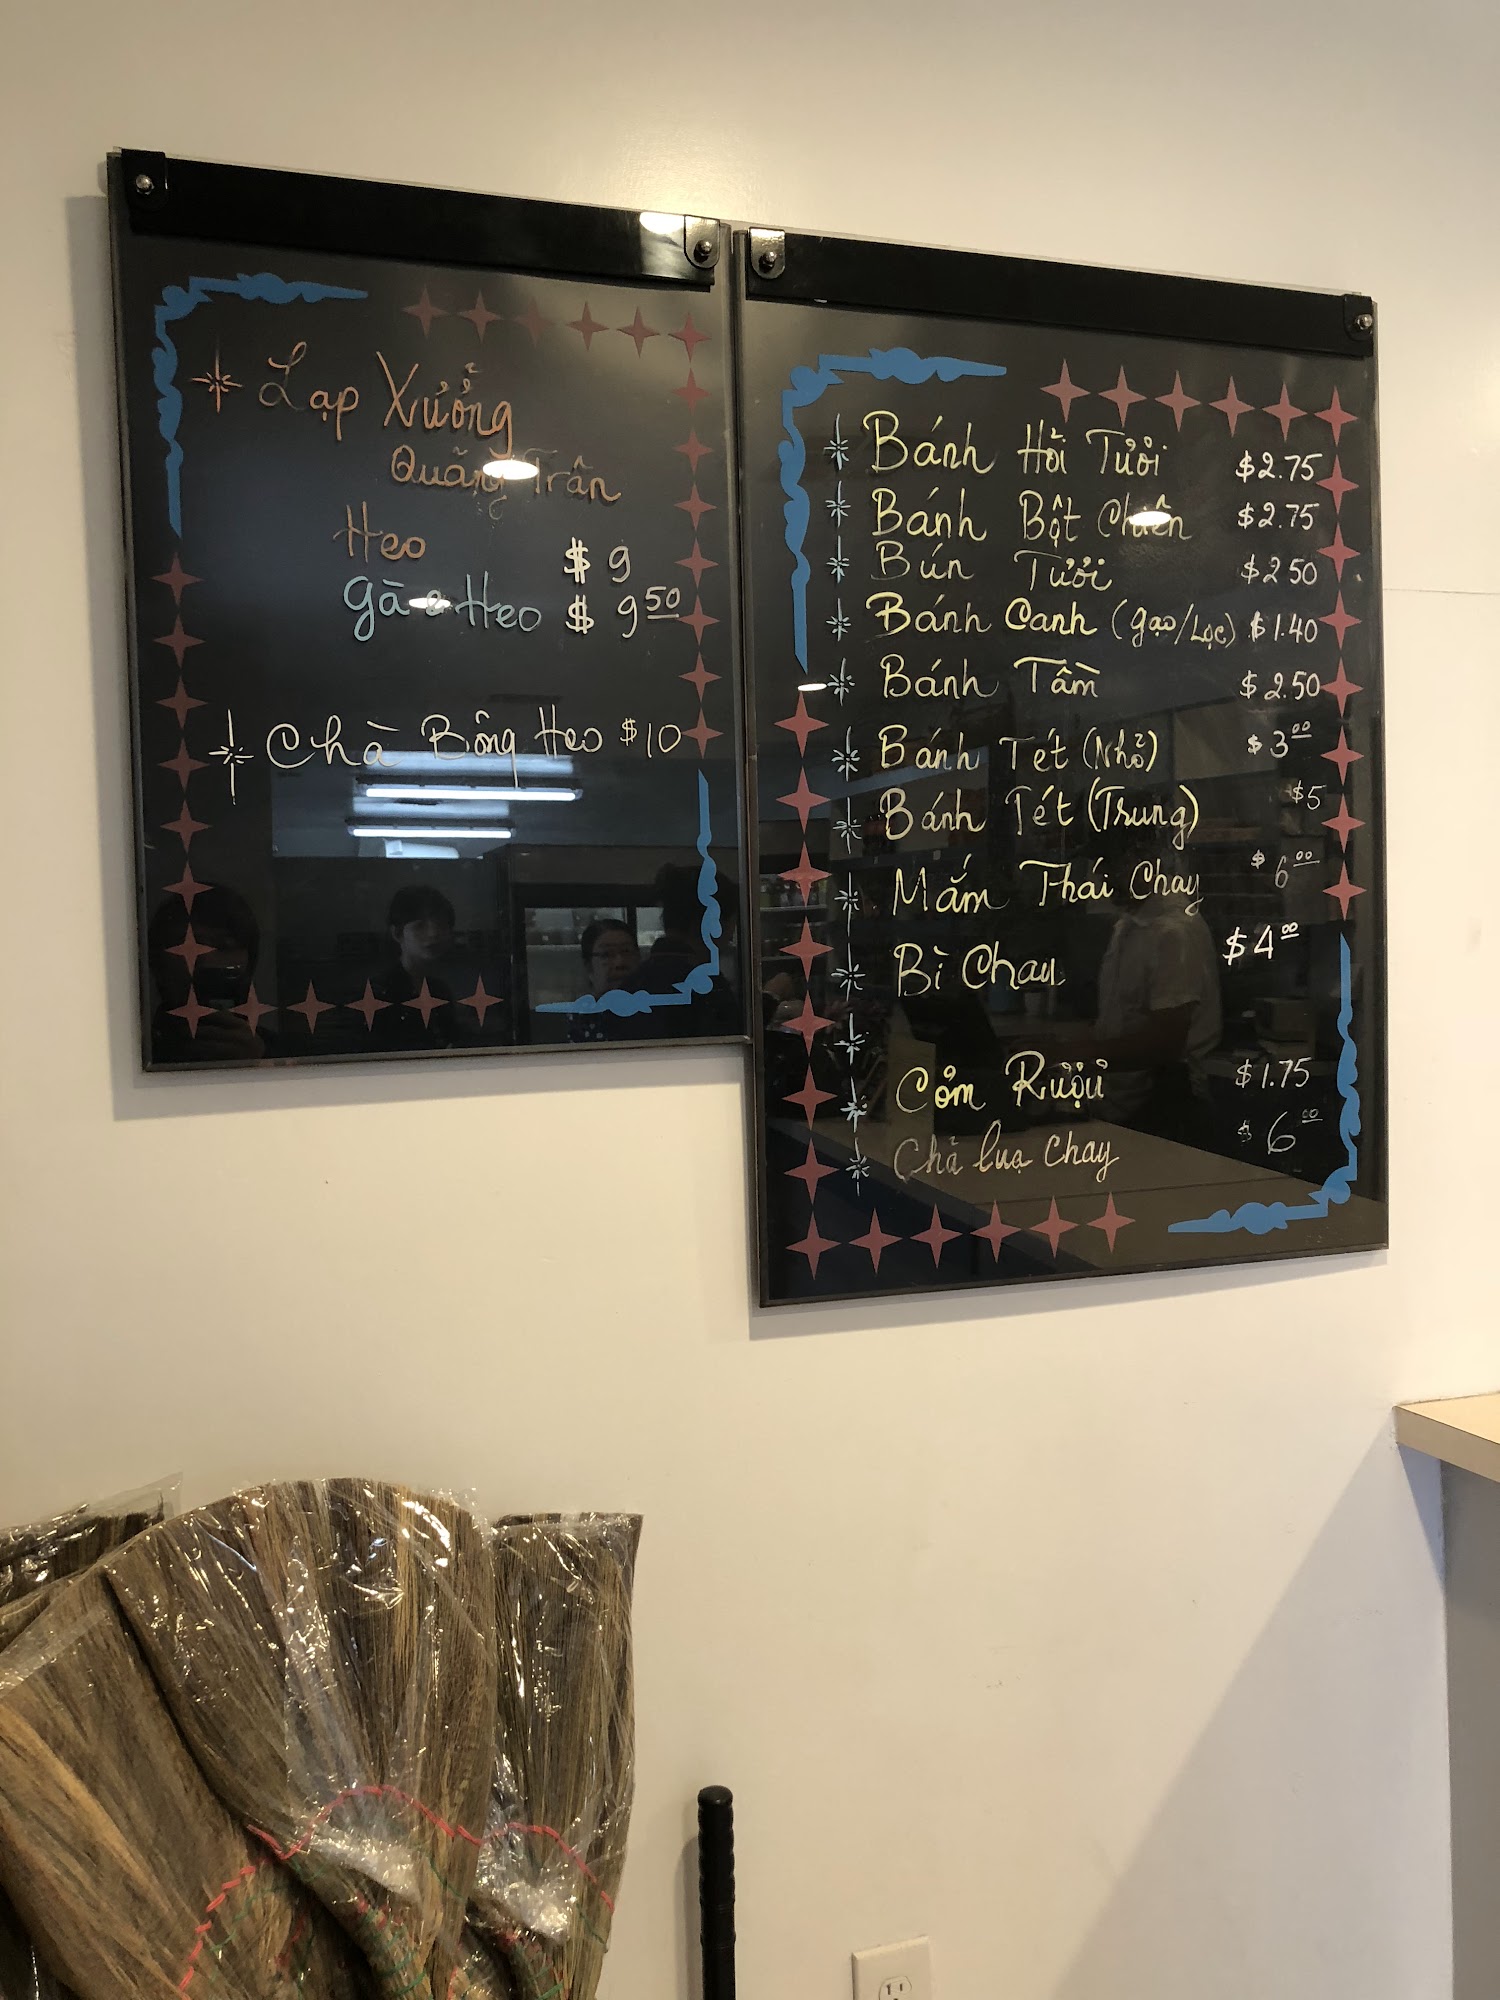 Lạp Xưởng
Quãng Trân
Heo $9
gà & Heo $9 50
Chà Bông Heo $10
Bánh Hỏi Tưởi $2.75
Bánh Bột Chiên $2.75
Bún Tưởi $2 50
Bánh Canh (gạo/Lọc) $1.40
Bánh Tầm $2.50
Bánh Tét (Nhỏ) $3 00
Bánh Tét (Trung) $5
Mắm Thái Chay $6 00
Bì Chay $4 00
Cơm Rượu $1.75
Chả lụa chay $6 00